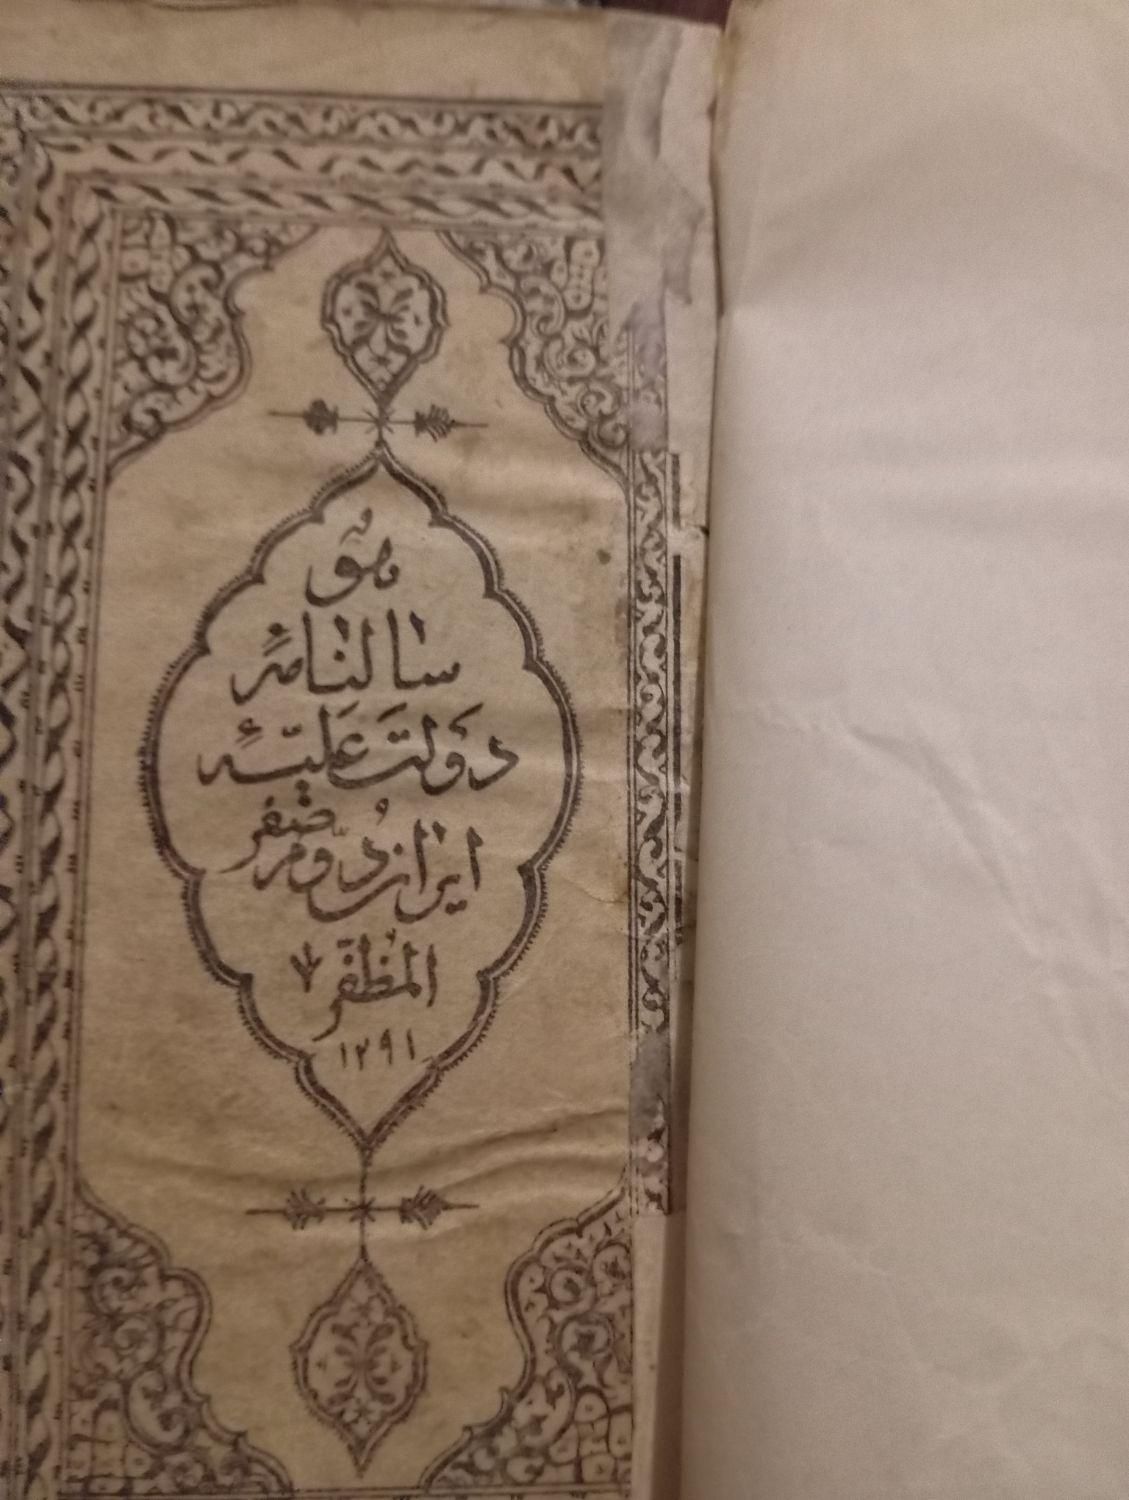 هو
سالنامهٔ
دولت علیّهٔ
ایران دوم صفر
المظفّر
۱۲۹۱